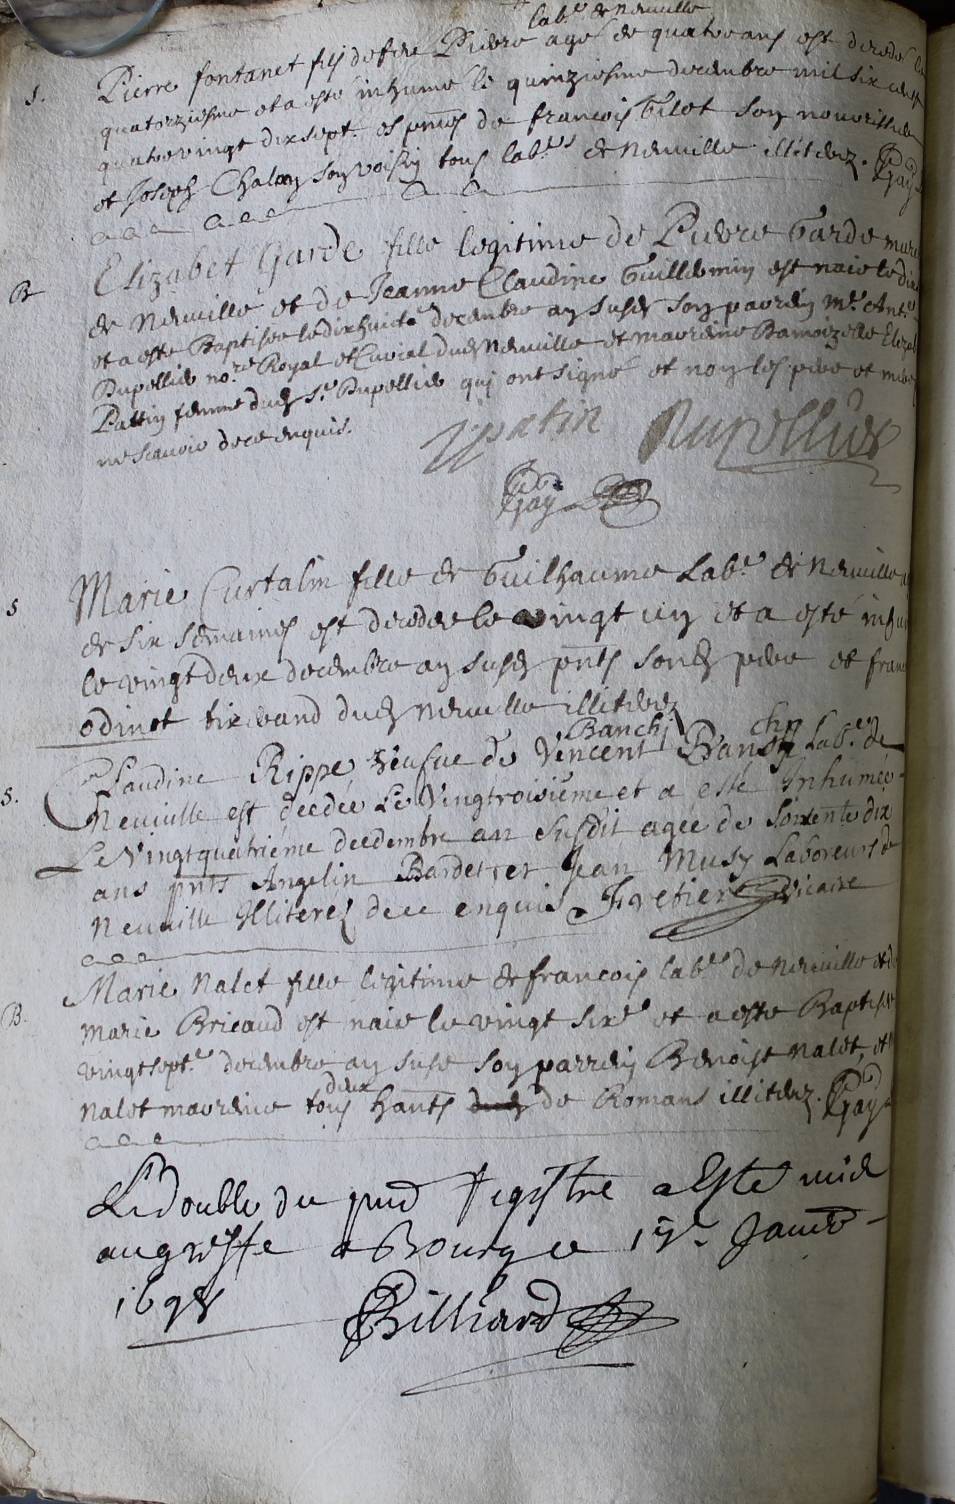 labr de neuville
S. Pierre fontanet fils de feu Pierre agé de quatre ans est decedé le
quatorziesme et a esté inhumé le quinziesme decembre mil six cent
quatrevingt dix sept. es pnts de francois Gilet son nourissier
et Joseph Chalon son voisin tous labrs de neuville illiterez. Gay
B Elizabet Garde fille legitime de Pierre Garde
de neuville et de Jeanne Claudine Guillemin est naie le
et a esté Baptisée le dixhuicte decembre an susd son parrein Mr Ant
Dupellier nore Royal et Curial dud neuville et marreine Damoizelle Eliza
Pattin femme dud Sr Dupellier qui ont signé et non les pere et mere
ne scavoir de ce enquis.
patin Dupellier
Gay
S Marie Curtalin fille de Guilhaume Labr de neuville
de six semaines est decedee le vingt un et a esté inhu
le vingt deux decembre an susd pnts sond pere et fran
odinet tixerand dud neuville illiterez
Banchi
S. Claudine Rippe veufue de Vincent Labr de
Neuville est decedée Le Vingtroisième et a esté Inhumée
Le Vingtquatriéme decembre an susdit agée de soixente dix
ans pnts Angelin Bardet et Jean Musy Laboreurs de
Neuville Illiterez de ce enquis Fretier vicaire
B. Marie Nalet fille legitime de francois labr de neuville et de
marie Bricaud est naie le vingt sixe et a esté Baptisée
vingtsept.e decembre an susd son parrein Benoist nalet, et
deux
Nalet marreine tous hants de Romans illiterez. Gay
Le double du pnd registre a Esté mis
au greffe a Bourg ce 17e Janvr
1698 Billiard